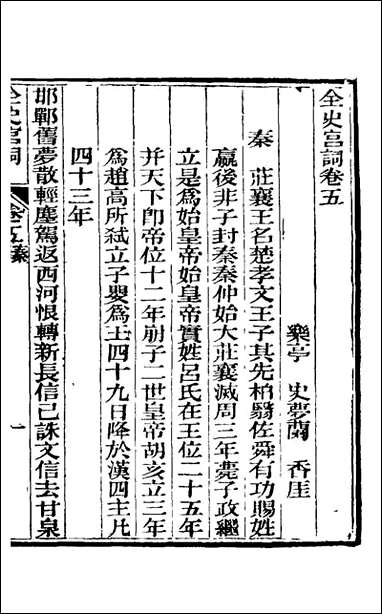 全史宮詞卷五
樂亭　史夢蘭　香厓
秦　莊襄王名楚孝文王子其先柏翳佐舜有功賜姓
嬴後非子封秦秦仲始大莊襄滅周三年薨子政繼
立是爲始皇帝始皇帝實姓呂氏在王位二十五年
并天下卽帝位十二年崩子二世皇帝胡亥立三年
爲趙高所弑立子嬰爲王四十九日降於漢四主凡
四十三年
邯鄲舊夢散輕塵駕返西河恨轉新長信已誅文信去甘泉
全史宮詞
卷五秦
一